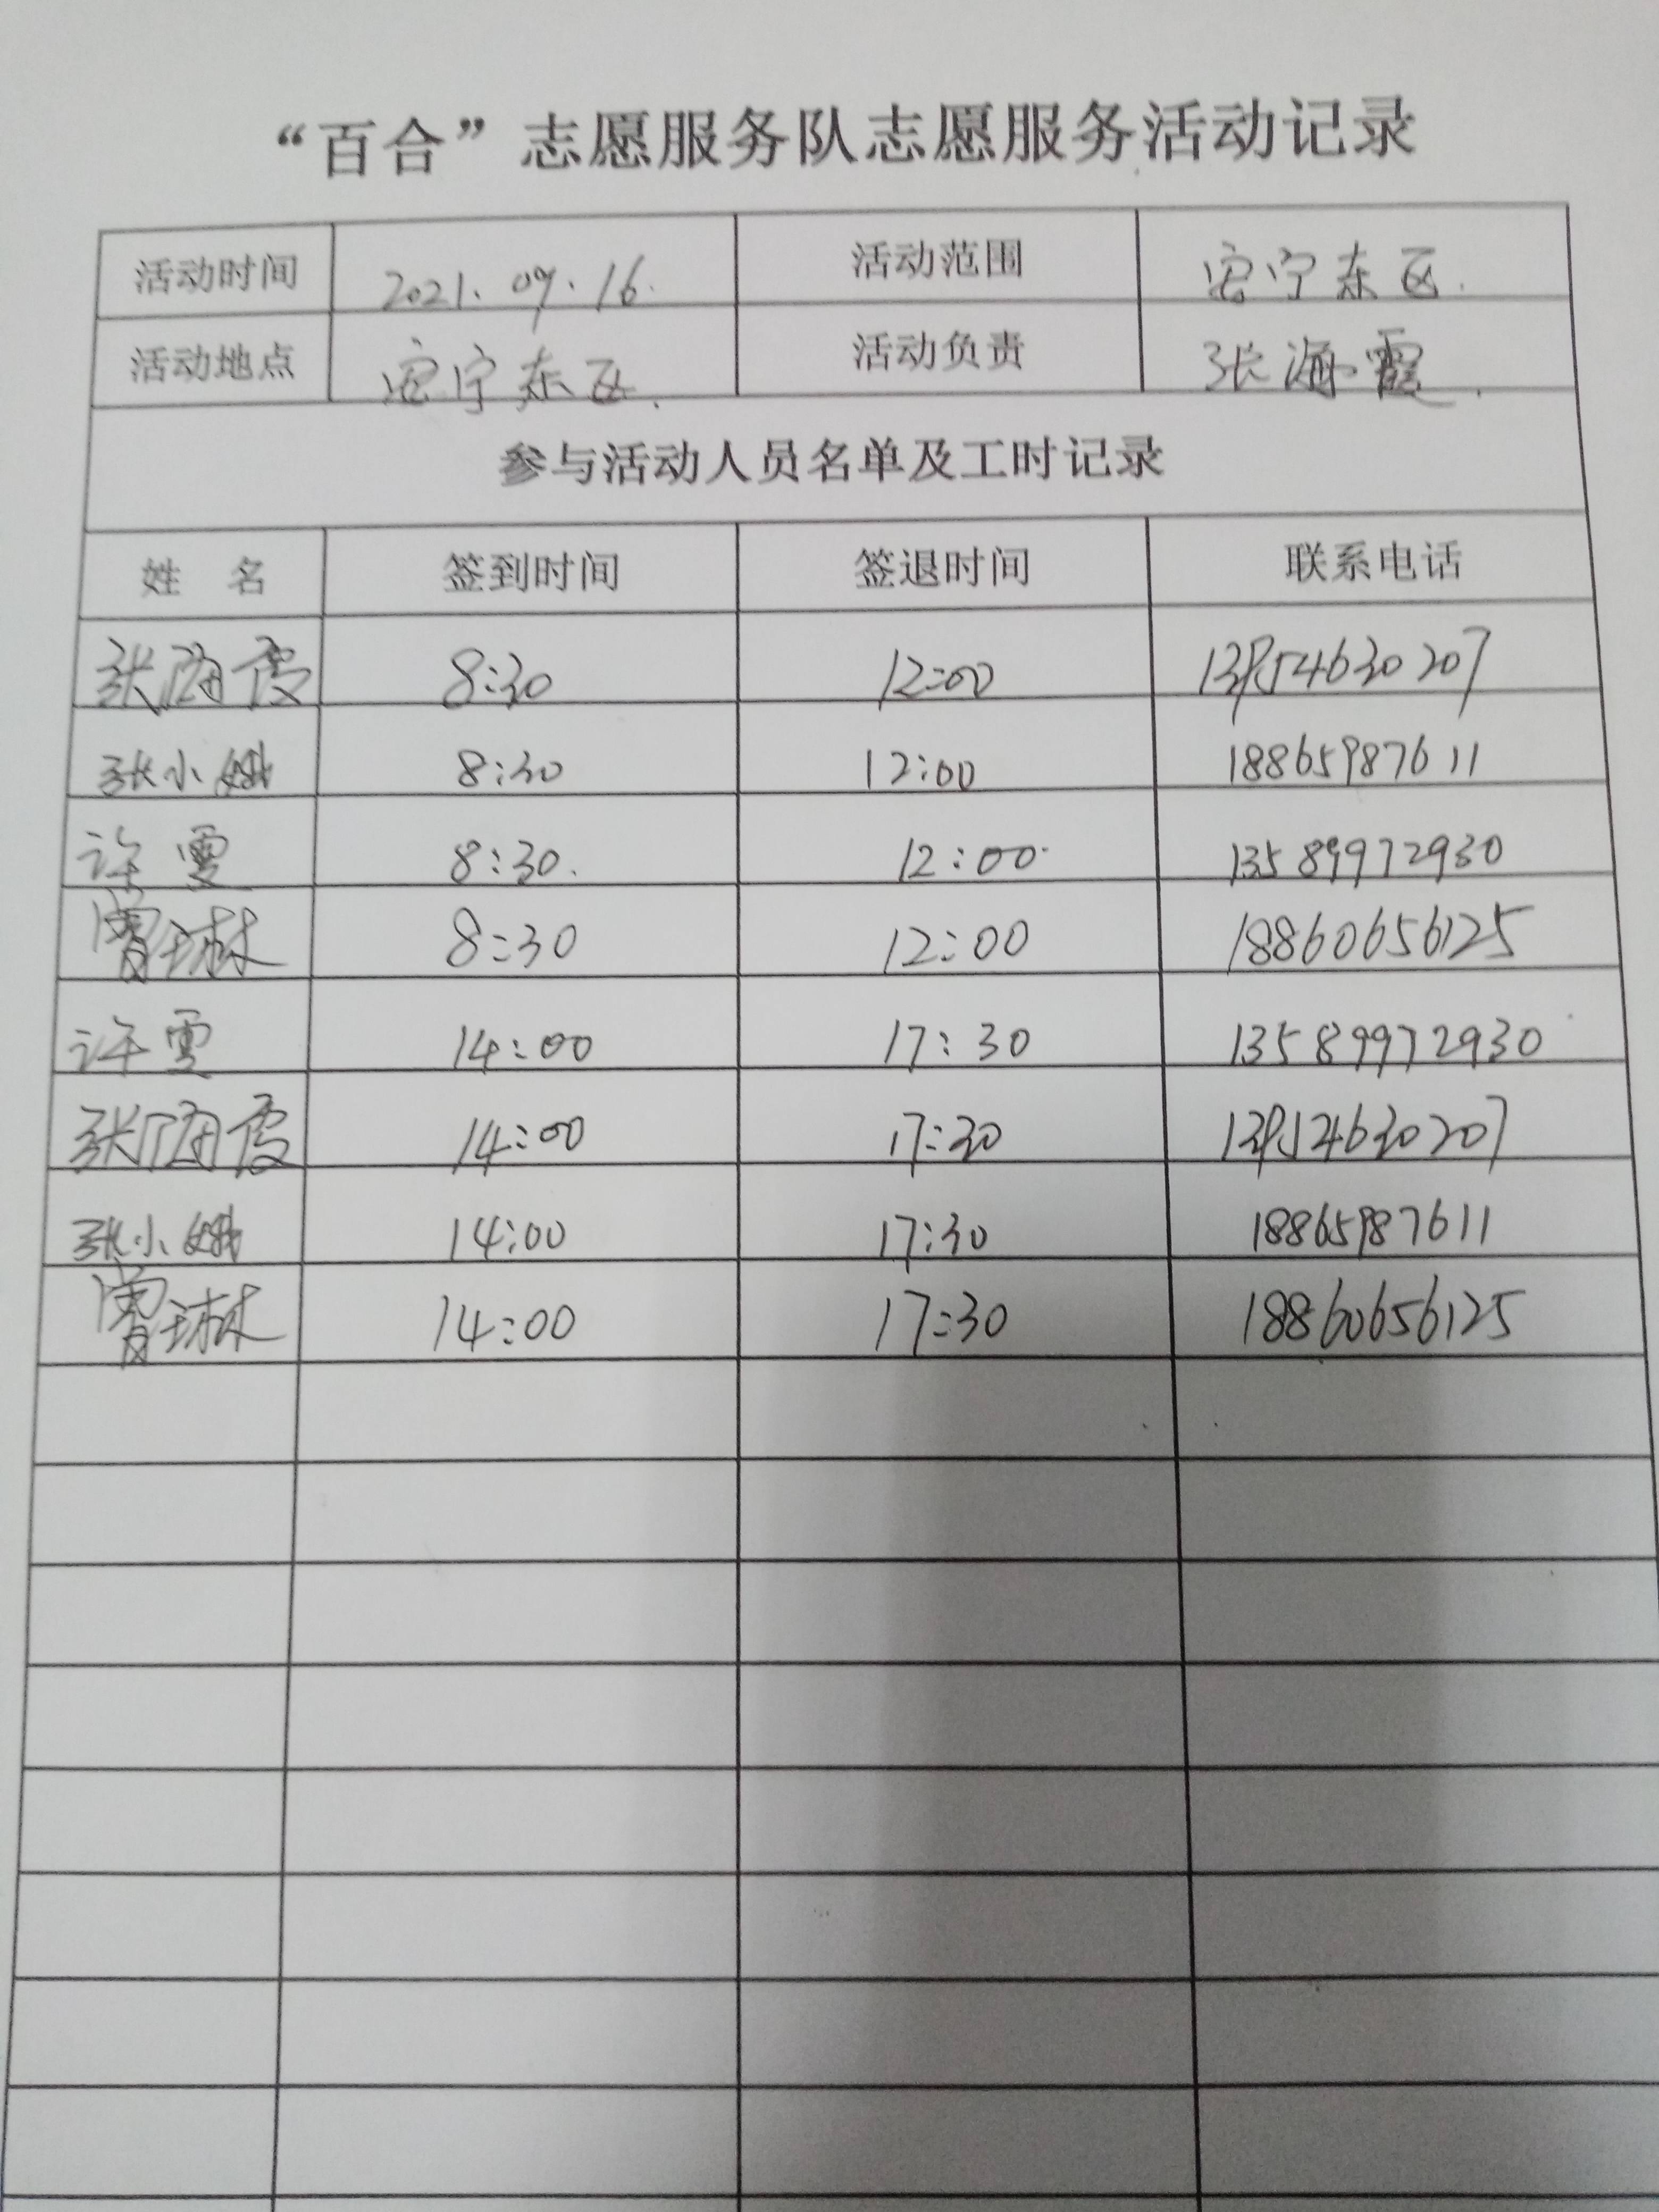 “百合”志愿服务队志愿服务活动记录
活动时间 2021.09.16. 活动范围 安宁东区.
活动地点 安宁东区. 活动负责 张海霞.
参与活动人员名单及工时记录
姓 名 签到时间 签退时间 联系电话
张海霞 8:30 12:00 13954630207
张小娥 8:30 12:00 18865987611
许雯 8:30. 12:00 13589972930
曾琳 8:30 12:00 18860656125
许雯 14:00 17:30 13589972930
张海霞 14:00 17:30 13954630207
张小娥 14:00 17:30 18865987611
曾琳 14:00 17:30 18860656125